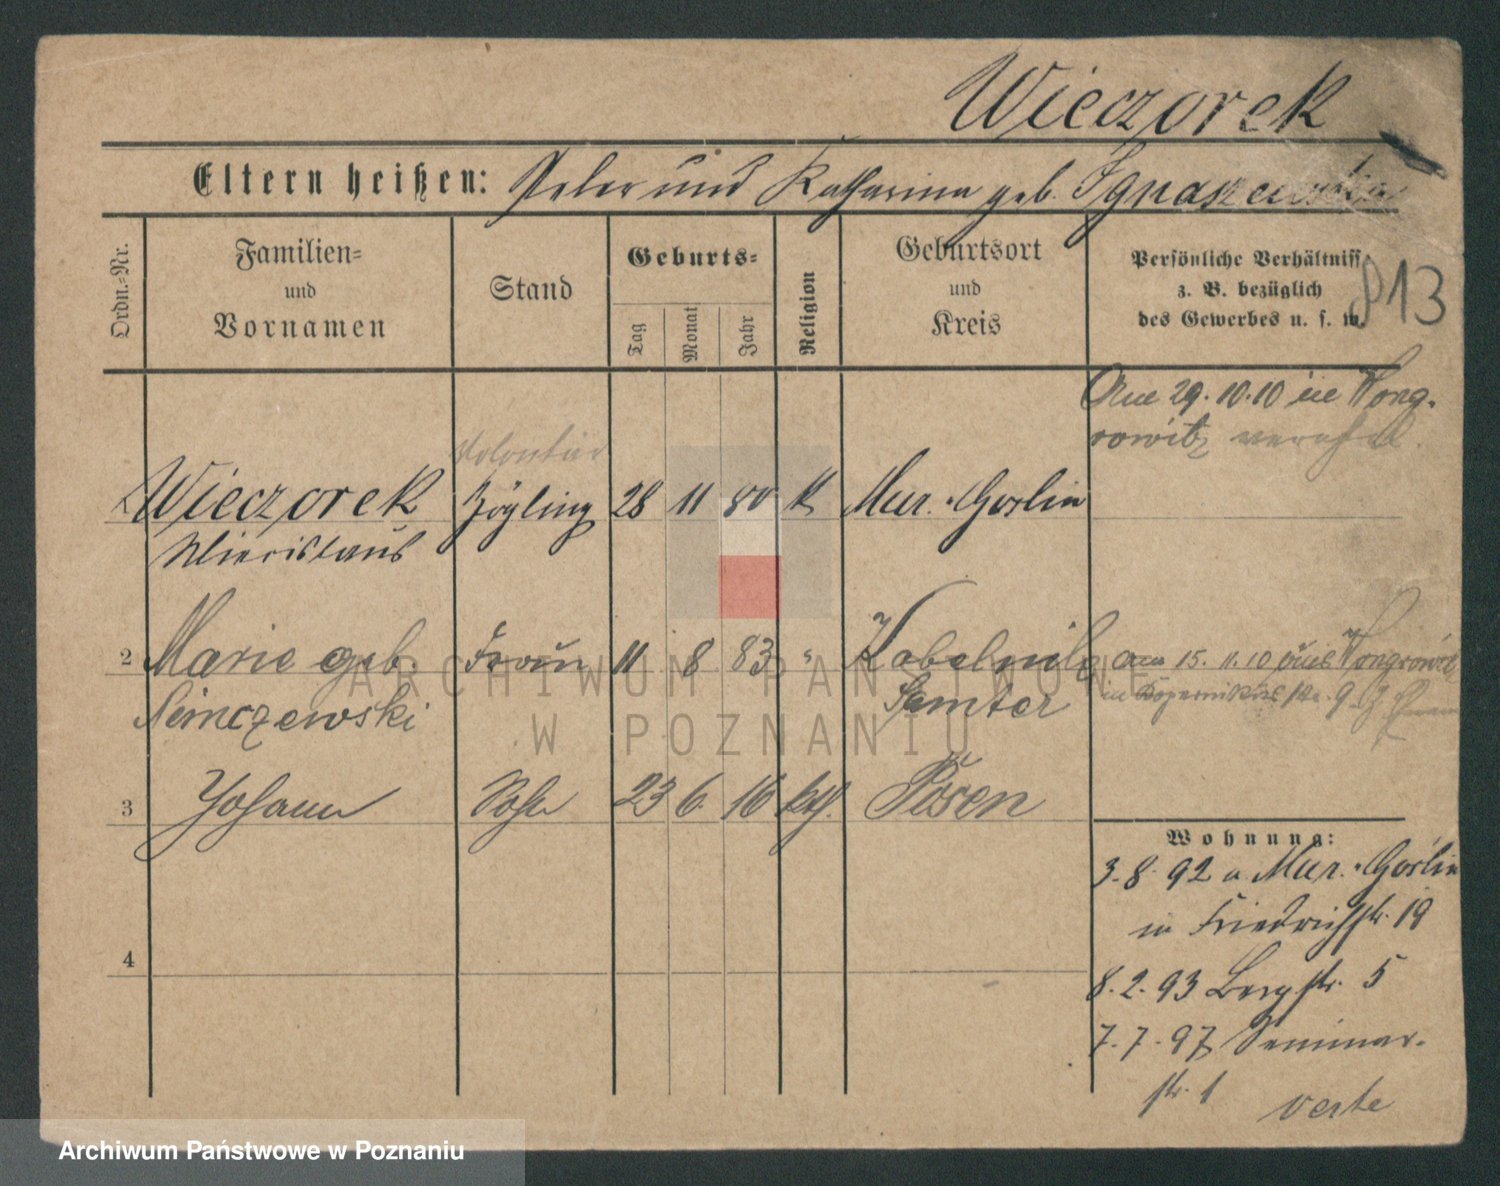 Wieczorek
Eltern heißen: Peter und Katharina geb. Ignaszewska
Ordn.-Nr.
Familien- und Vornamen
Stand
Geburts-
Tag
Monat
Jahr
Religion
Geburtsort und Kreis
Persönliche Verhältniss
z. B. bezüglich
des Gewerbes u. s. w.
P13
Am 29.10.10 in Wong-
rowitz verehel.
Volontär
Wieczorek Zögling 28 11 80 K Mur.-Goslin
Miecislaus
2 Marie geb. Frau 11 8 83 " Kobelnik
Niemczewski Samter
Am 15.11.10 aus Wongrowitz
in Kopernikus
3 Johann Sohn 23 6 16 kth. Posen
4
Wohnung:
3.8.92 a. Mur.-Goslin
in Friedrichstr. 19
8.2.93 Bergstr. 5
7.7.97 Seminar-
str. 1
verte
ARCHIWUM PAŃSTWOWE
W POZNANIU
Archiwum Państwowe w Poznaniu